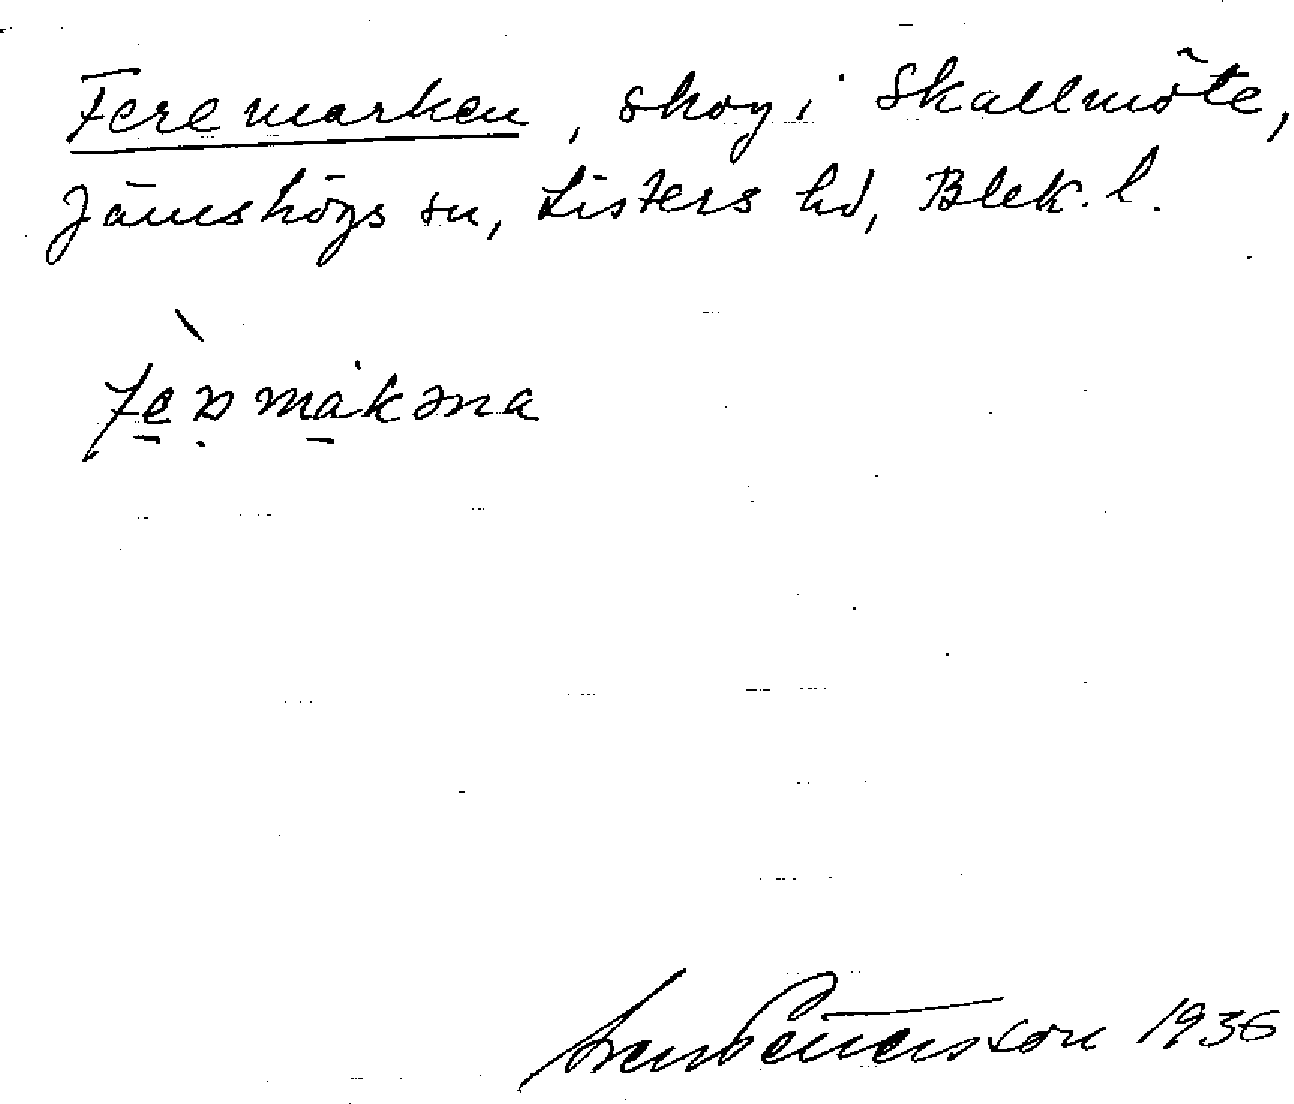 Feremarken, skog i Skallmöte,
Jämshögs sn, Listers hd, Blek. l.
Sven Pettersson 1936